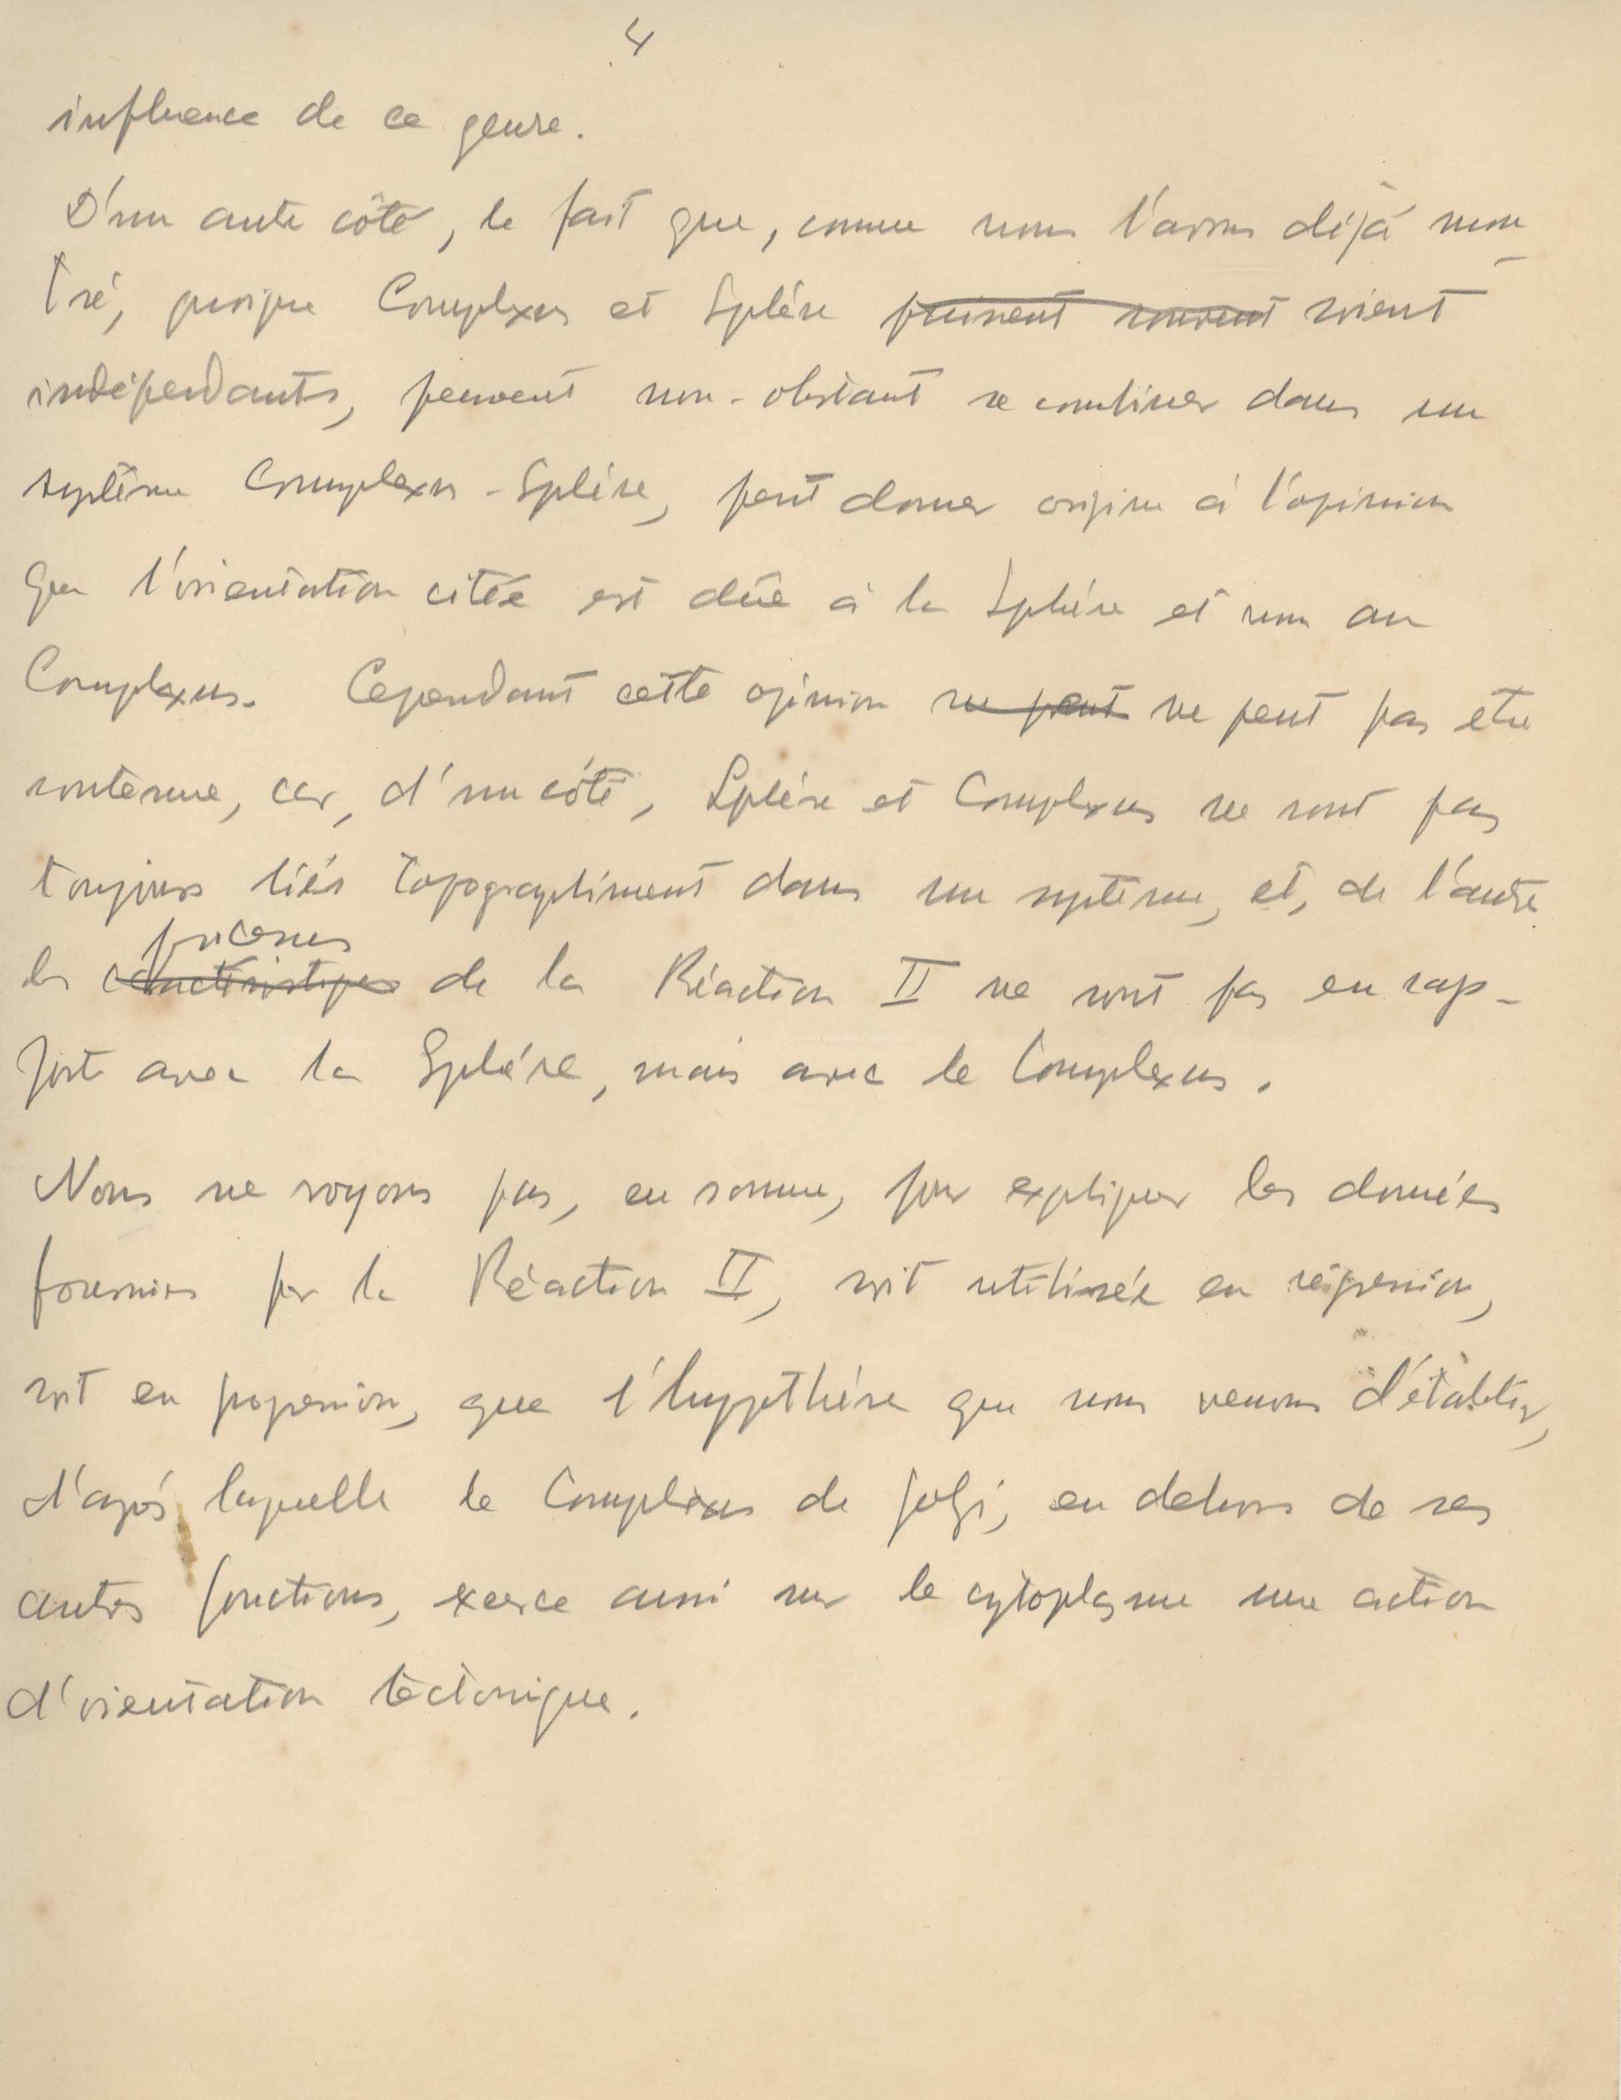 4
influence de ce genre.
D'un autre côté, le fait que, comme nous l'avons déjà mon-
tré, quoique Complexus et Sphère puissent souvent soient
indépendants, peuvent non-obstant se combiner dans un
système Complexus-Sphère, peut donner origine à l'opinion
que l'orientation citée est dûe à la Sphère et non au
Complexus. Cependant cette opinion ne peut ne peut pas etre
soutenue, car, d'un côté, Sphère et Complexus ne sont pas
toujours liés topographiment dans un système, et, de l'autre
processus
les caractéristiques de la Réaction II ne sont pas en rap-
port avec la Sphére, mais avec le Complexus.
Nous ne voyons pas, en somme, pour expliquer les données
fournies par la Réaction II, soit utilisée en régression,
soit en progression, que l'hypothèse que nous venons d'établir,
d'après laquelle le Complexus de Golgi, en dehors de ses
autres fonctions, exerce aussi sur le cytoplasme une action
d'orientation tectonique.